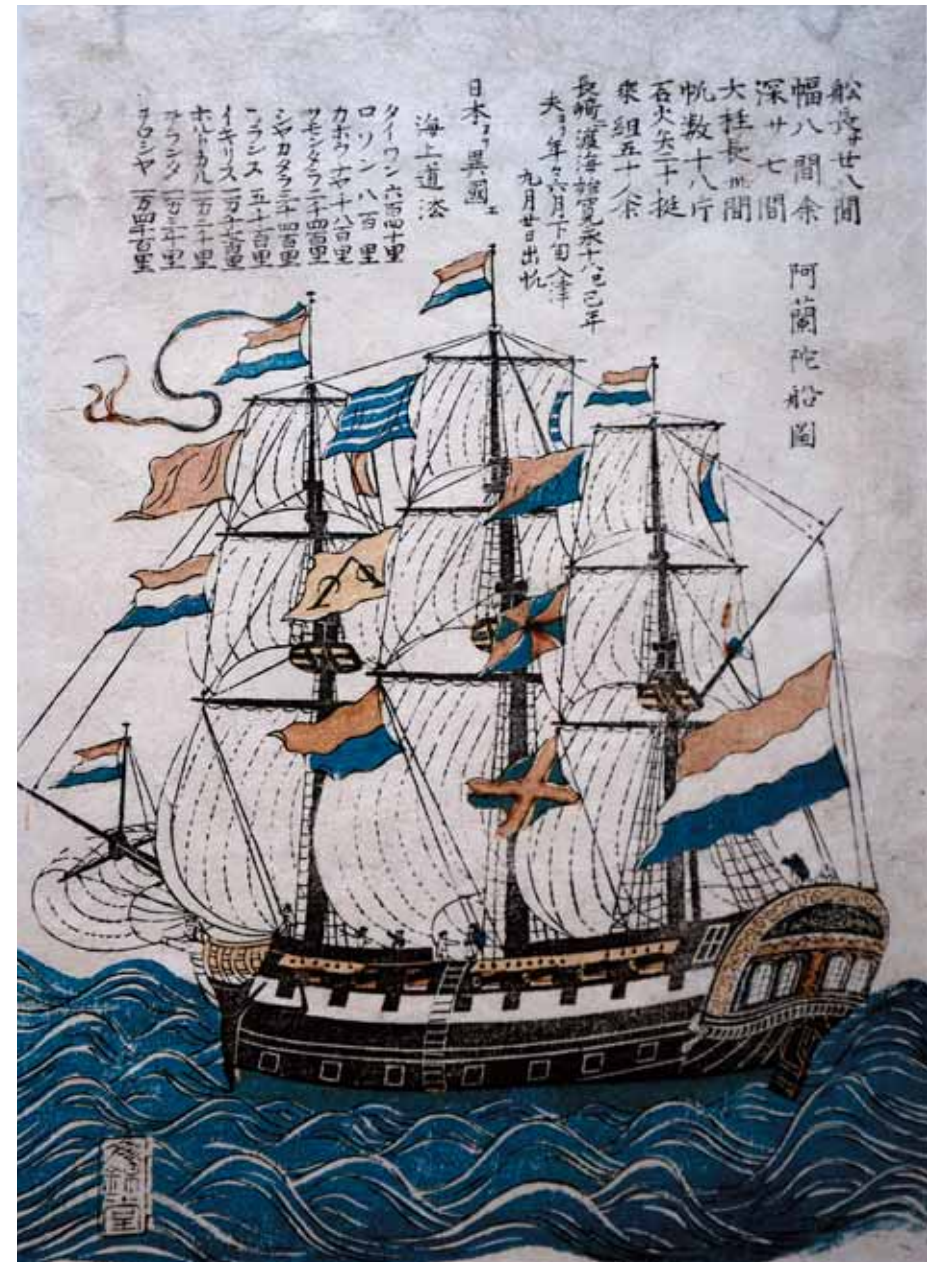 舩長サ廿八間
幅八間余
深サ七間
大柱長 間
帆数十八
石火矢 十挺
乗組五十人余
長崎エ渡海始寛永十八 巳年
夫ヨリ年々六月下旬入津
九月廿日出帆
阿蘭陀船圖
日本ヨリ異國エ
海上道法
タイワン 六百四十里
ロソン 八百里
カホウチヤ 八百里
サモンタラ 二千四百里
シヤカタラ 三千四百里
フランス 五千 百里
イキリス 一万 百里
ホルトカル 一万二千里
ヲランダ 一万三千里
ヲロシヤ 一万四千百里
文錦堂